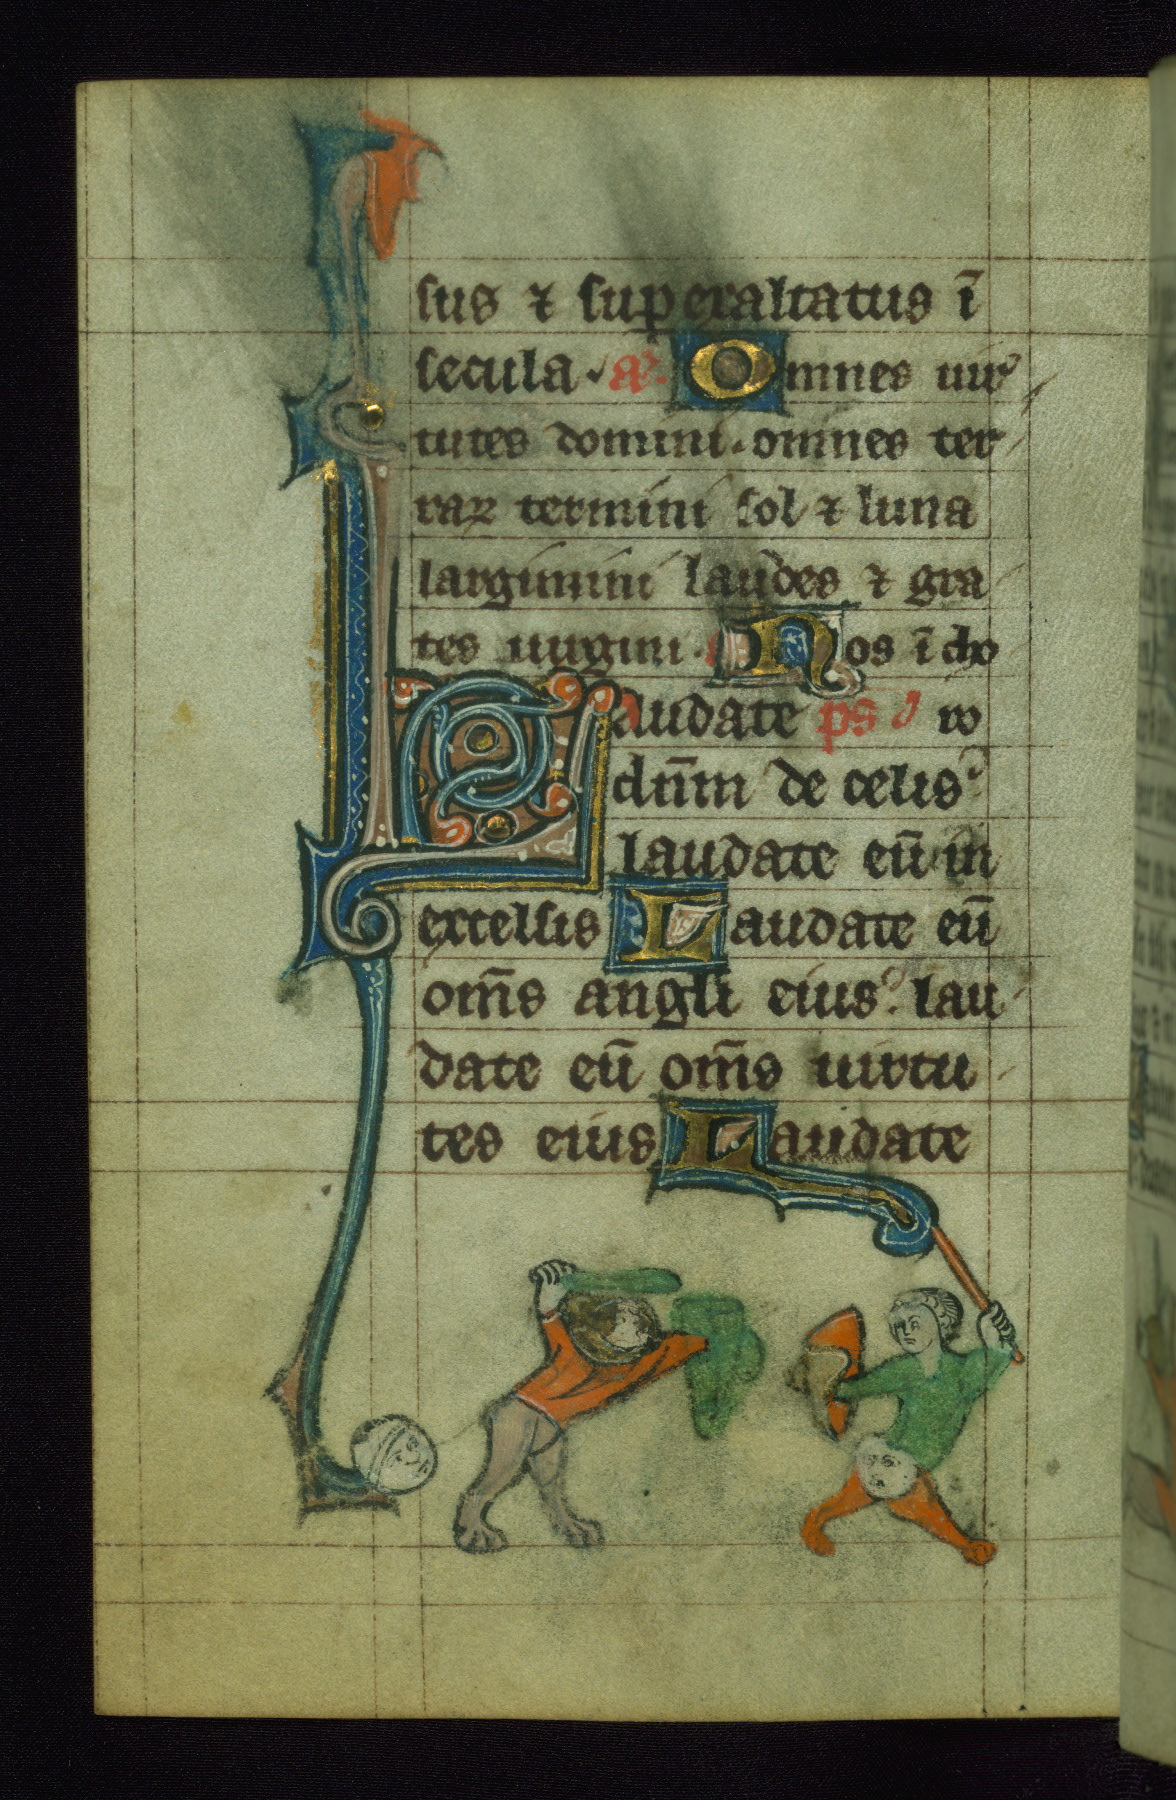 sus ⁊ superaltatus ī
secula. añ. Omnes uir
tutes domini. omnes ter
raꝝ termini sol ⁊ luna
largimini laudes ⁊ gra
tes uirgini. Nos ī cho
Laudate ps ro
dn̄m de celis
laudate eū in
excelsis Laudate eū
om̄s angli eius. lau
date eū om̄s uirtu
tes eius Laudate